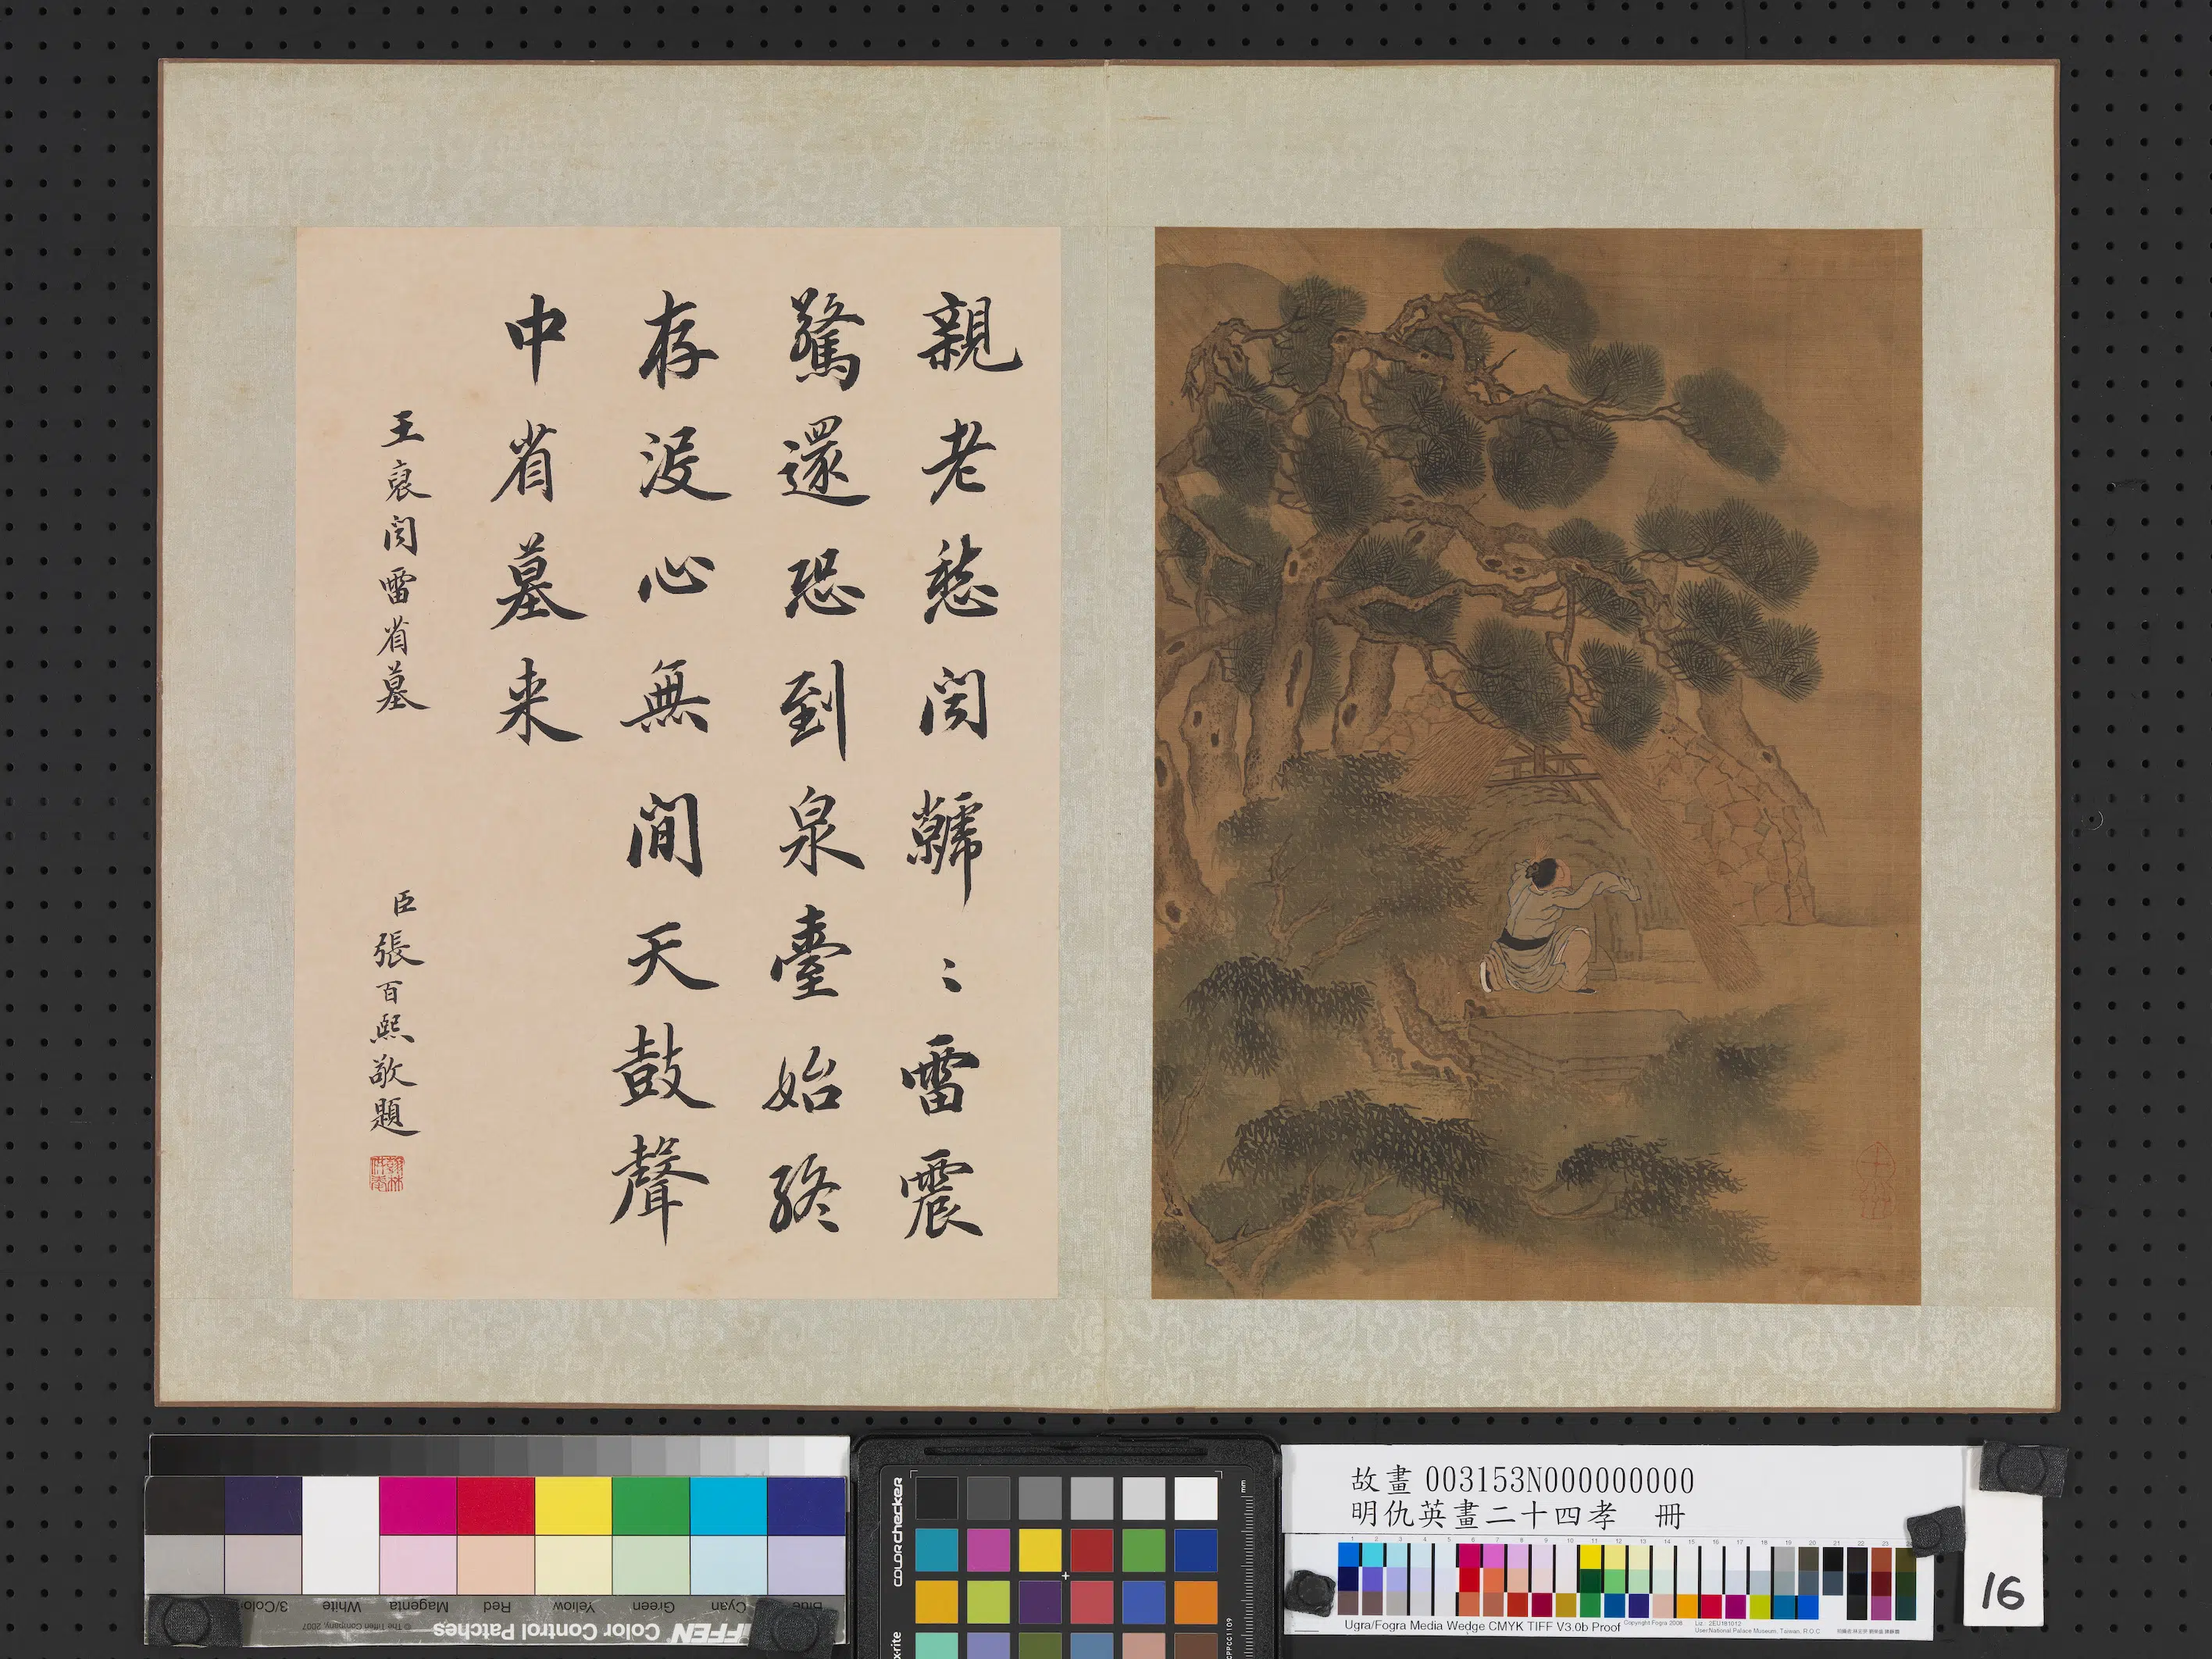 親老愁聞虩〻雷震
驚還恐到泉臺始終
存沒心無間天鼓聲
中省墓来
王裒聞雷省墓
臣張百熙敬題
故畫 003153N000000000
明仇英畫二十四孝 冊
Ugra/Fogra Media Wedge CMYK TIFF V3.0b Proof
User:National Palace Museum, Taiwan, R.O.C
16
colorchecker
x-rite
mm
Color Control Patches
© The Tiffen Company, 2007
Cyan
Green
Yellow
Red
Magenta
White
3/Color